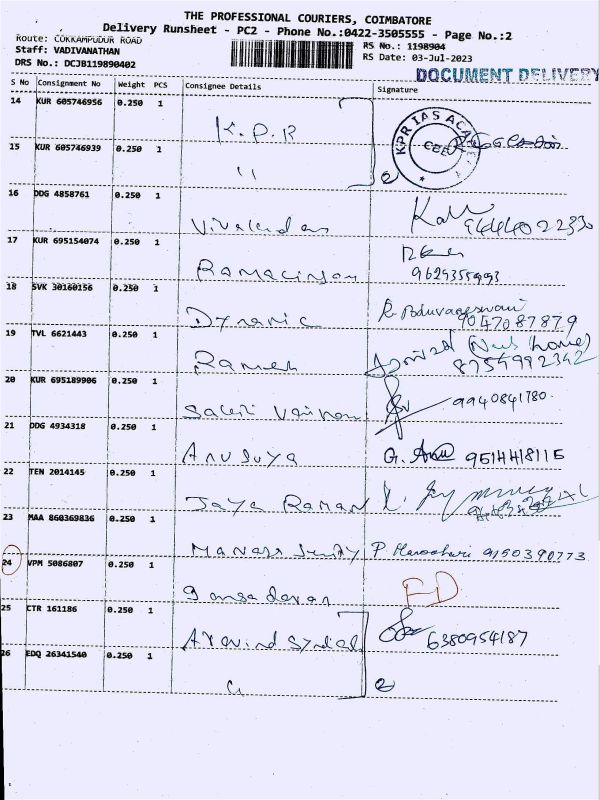 THE PROFESSIONAL COURIERS, COIMBATORE
Delivery Runsheet - PC2 - Phone No.:0422-3505555 - Page No.:2
Route: COKKAMPUDUR ROAD
RS No.: 1198904
Staff: VADIVANATHAN
RS Date: 03-Jul-2023
DRS No.: DCJB119890402
DOCUMENT DELIVERY
S No Consignment No Weight PCS Consignee Details Signature
14 KUR 605746956 0.250 1 K.P.R
KPR IAS ACADEMY
CBE
15 KUR 605746939 0.250 1 "
2
16 DDG 4858761 0.250 1
17 KUR 695154074 0.250 1
9629355993
18 SVK 30160156 0.250 1 Dynamic
9047087879
19 TVL 6621443 0.250 1 Ramesh
8754992342
20 KUR 695189906 0.250 1
9940841780.
21 DDG 4934318 0.250 1 Anusuya G. Anu 9514418115
22 TEN 2014145 0.250 1 Jaya Raman
23 MAA 860369836 0.250 1 9150390773
24 VPM 5086807 0.250 1 FD
25 CTR 161186 0.250 1 Aravind 6380954187
26 EDQ 26341540 0.250 1 "
2